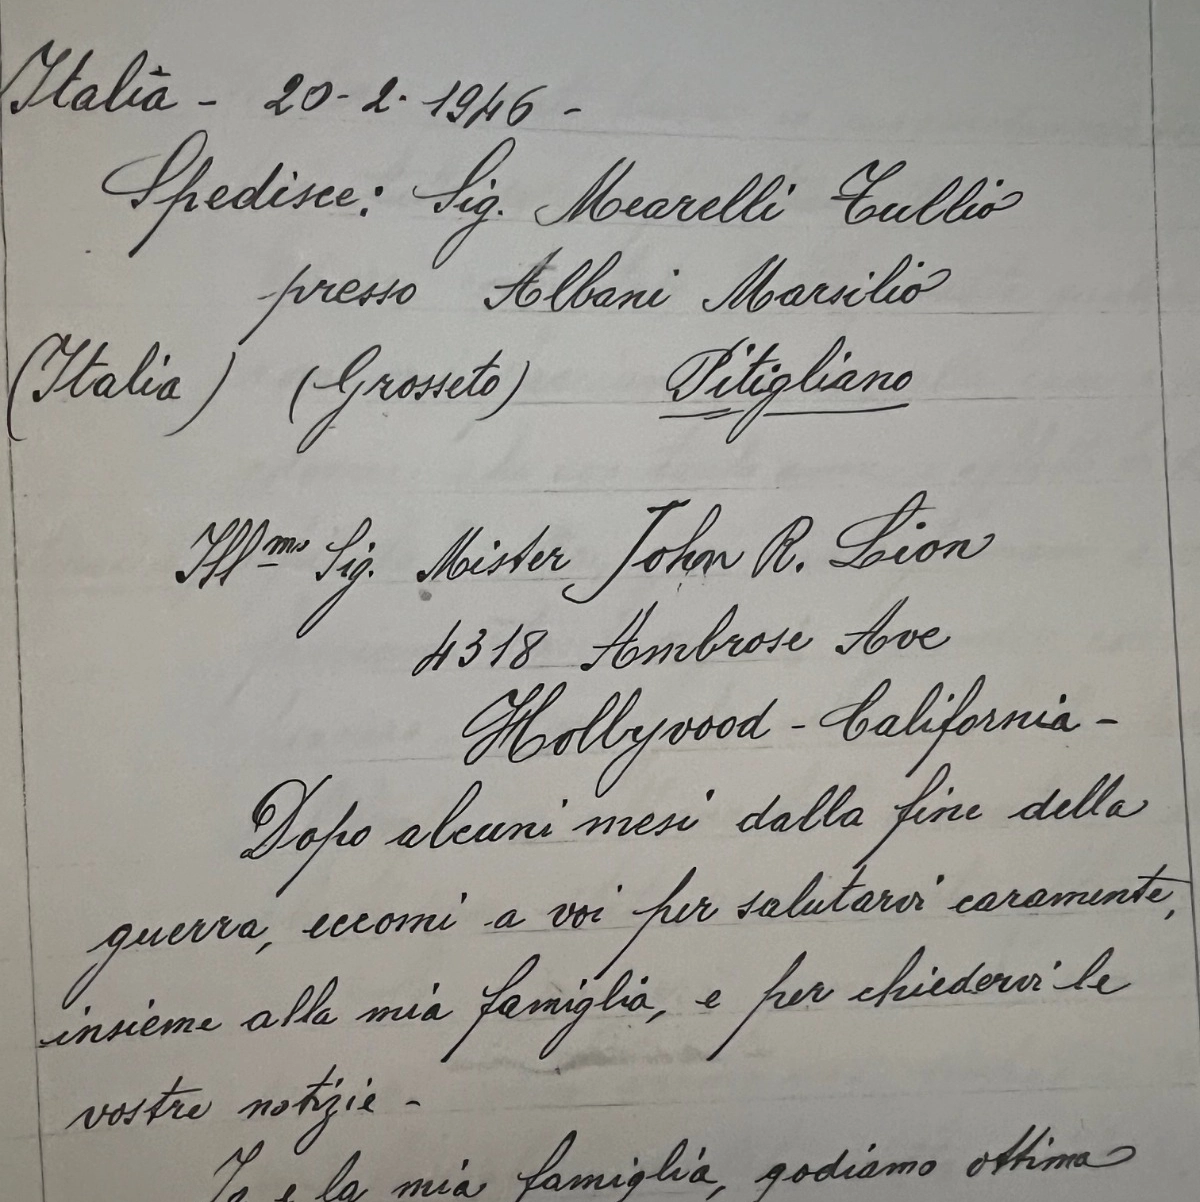 Italia - 20-2-1946 -
Spedisce: Sig. Mearelli Tullio
presso Albani Marsilio
(Italia) (Grosseto) Pitigliano
Ill.mo Sig. Mister John R. Lion
4318 Ambrose Ave
Hollyvood - California -
Dopo alcuni mesi dalla fine della
guerra, eccomi a voi per salutarvi caramente,
insieme alla mia famiglia, e per chiedervi le
vostre notizie -
Io e la mia famiglia, godiamo ottima